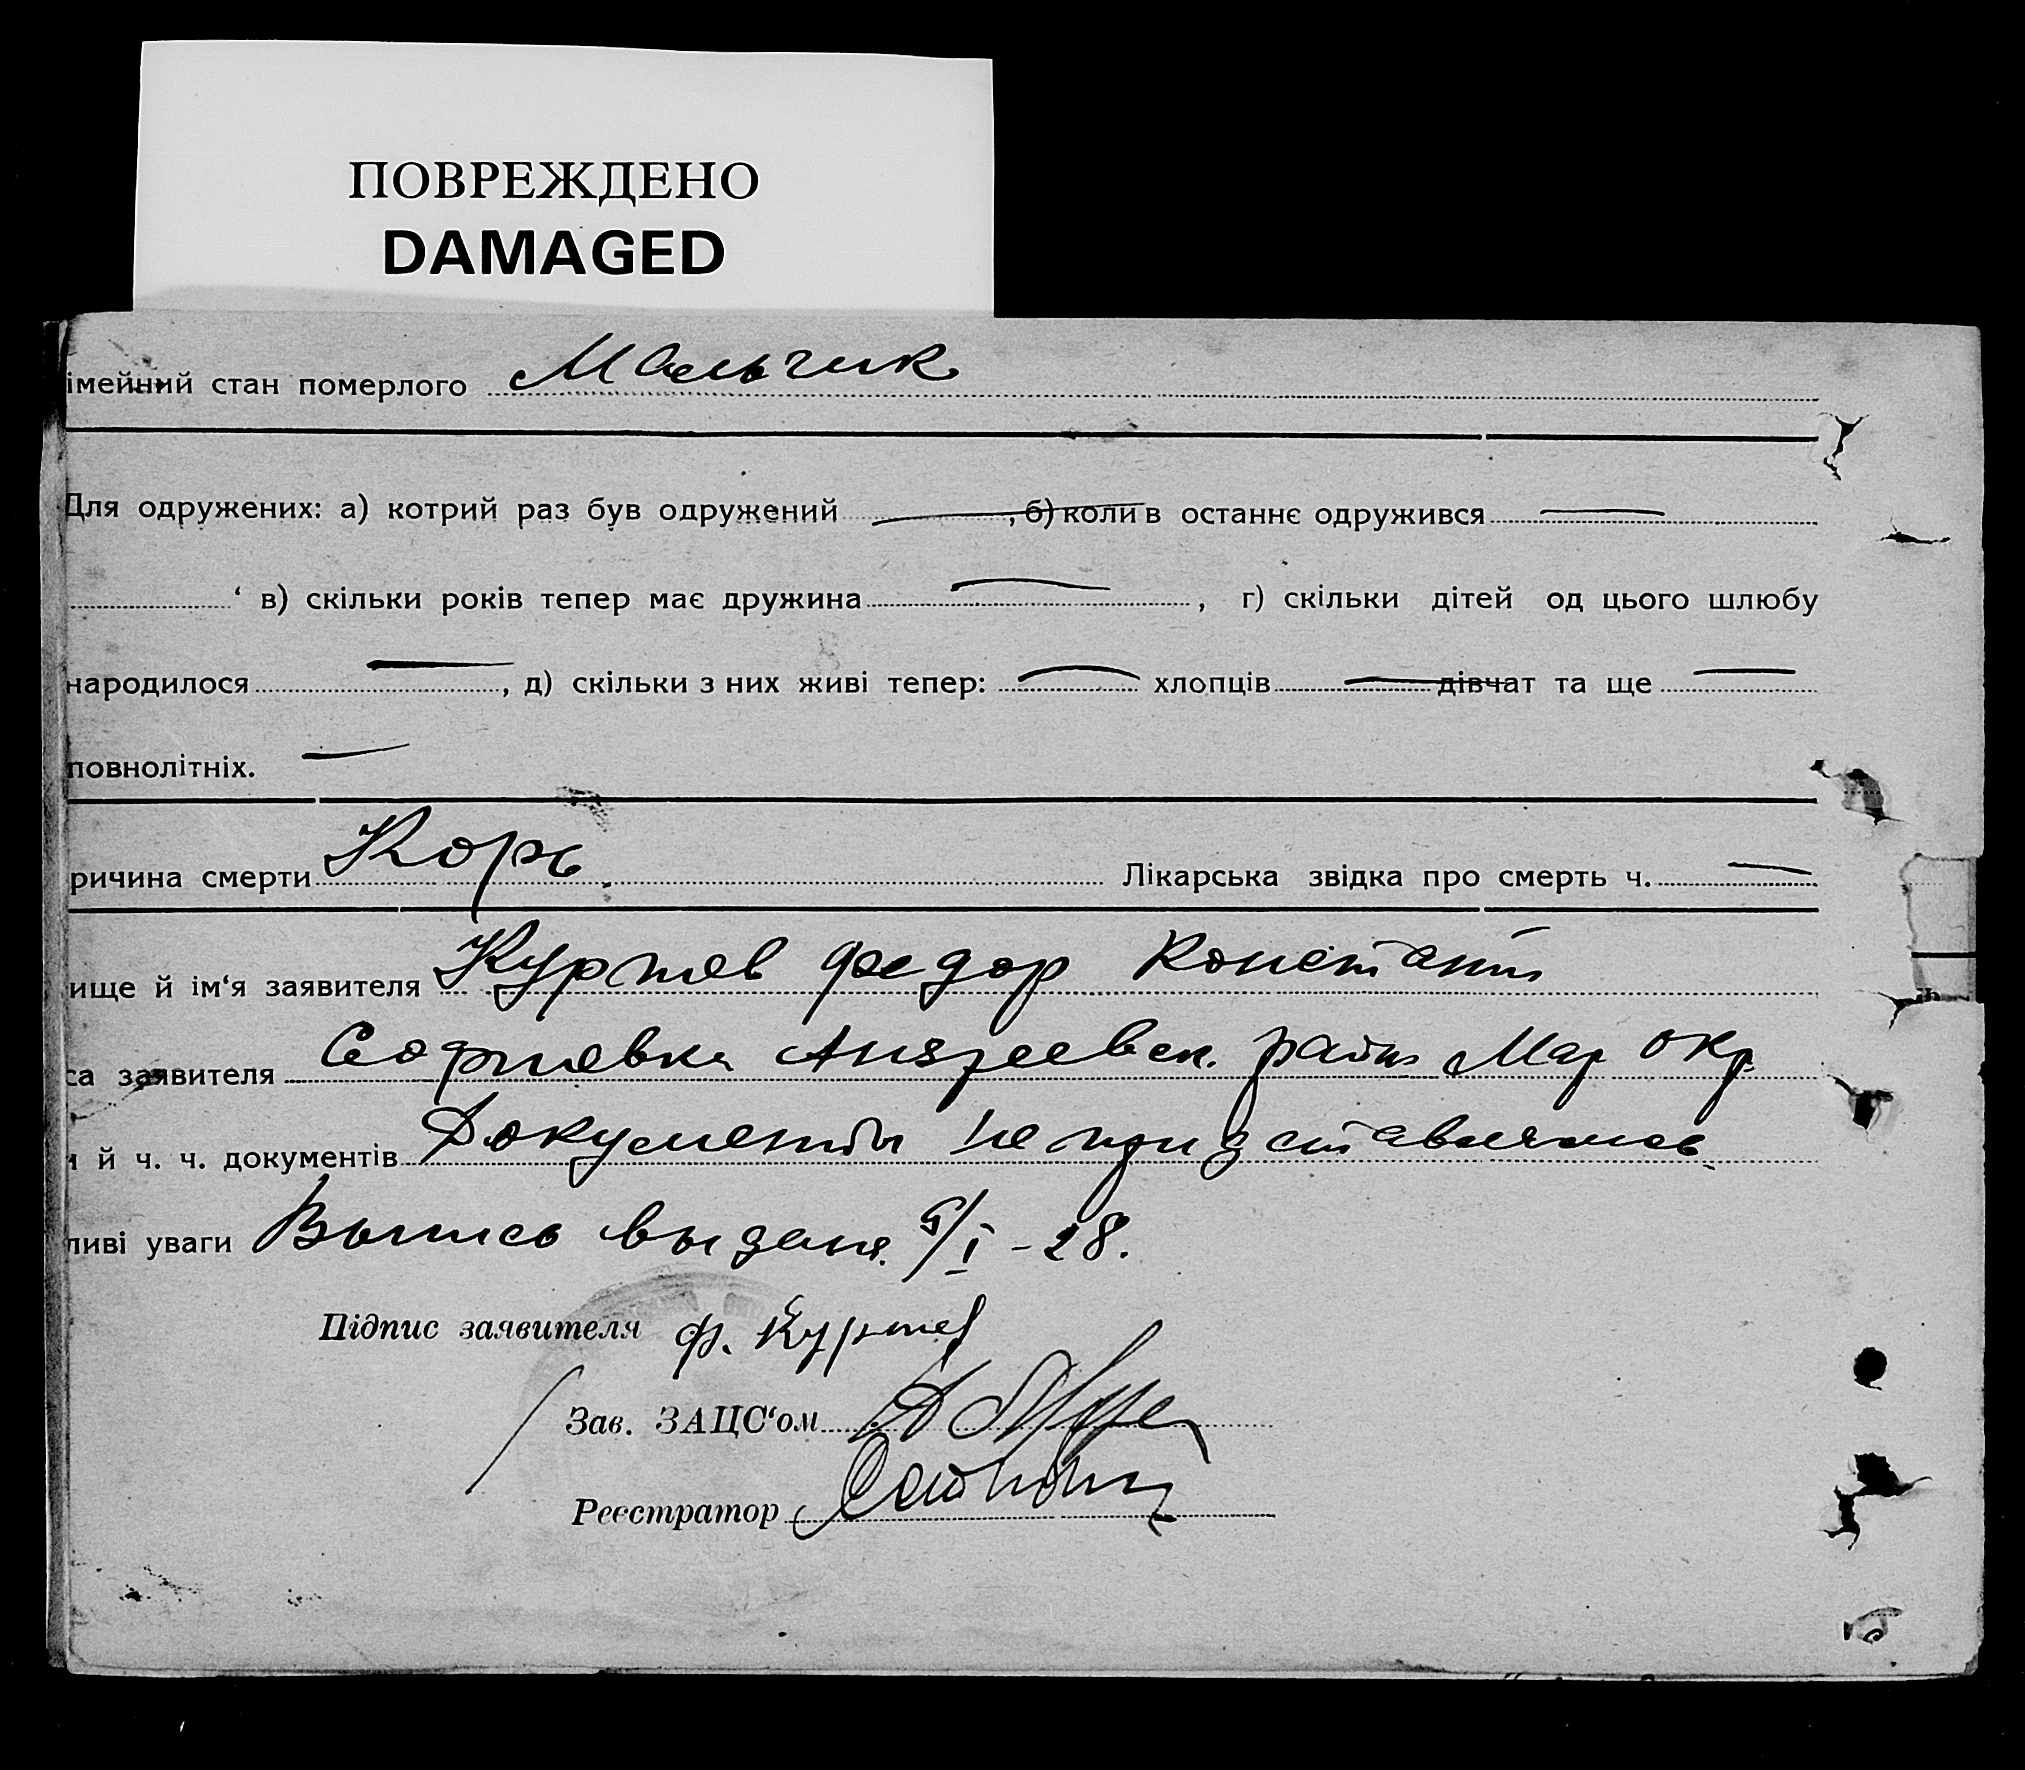 ПОВРЕЖДЕНО
DAMAGED
імейний стан померлого Мальчик
Для одружених: а) котрий раз був одружений , б) коли в останнє одружився
‘ в) скільки років тепер має дружина , г) скільки дітей од цього шлюбу
народилося , д) скільки з них живі тепер: хлопців дівчат та ще
повнолітніх.
ричина смерти Корь. Лікарська звідка про смерть ч.
ище й ім‘я заявителя Куртев Федор Констант
са заявителя Софиевка Андреевск. район Мар окр.
и й ч. ч. документів Документы не представлялись
ливі уваги Выпись выдана 5/I – 28.
Підпис заявителя Ф. Куртев
Зав. ЗАЦС‘ом
Реєстратор